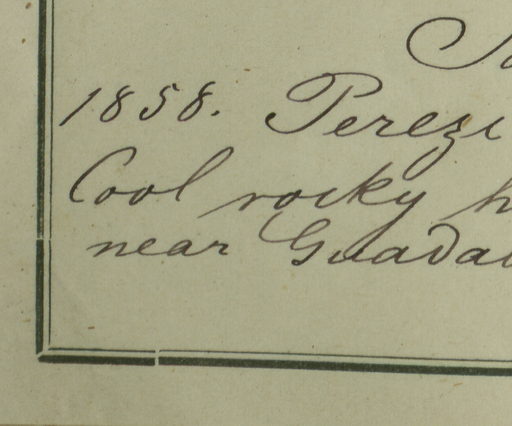 1858. Perezi
Cool rocky h
near Guadal